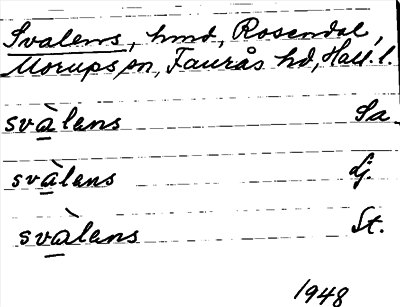 Svalens, hmd, Rosendal,
Morups sn, Faurås hd, Hall. l.
svàlens Sa.
svàlens Lj.
svàlens St.
1948